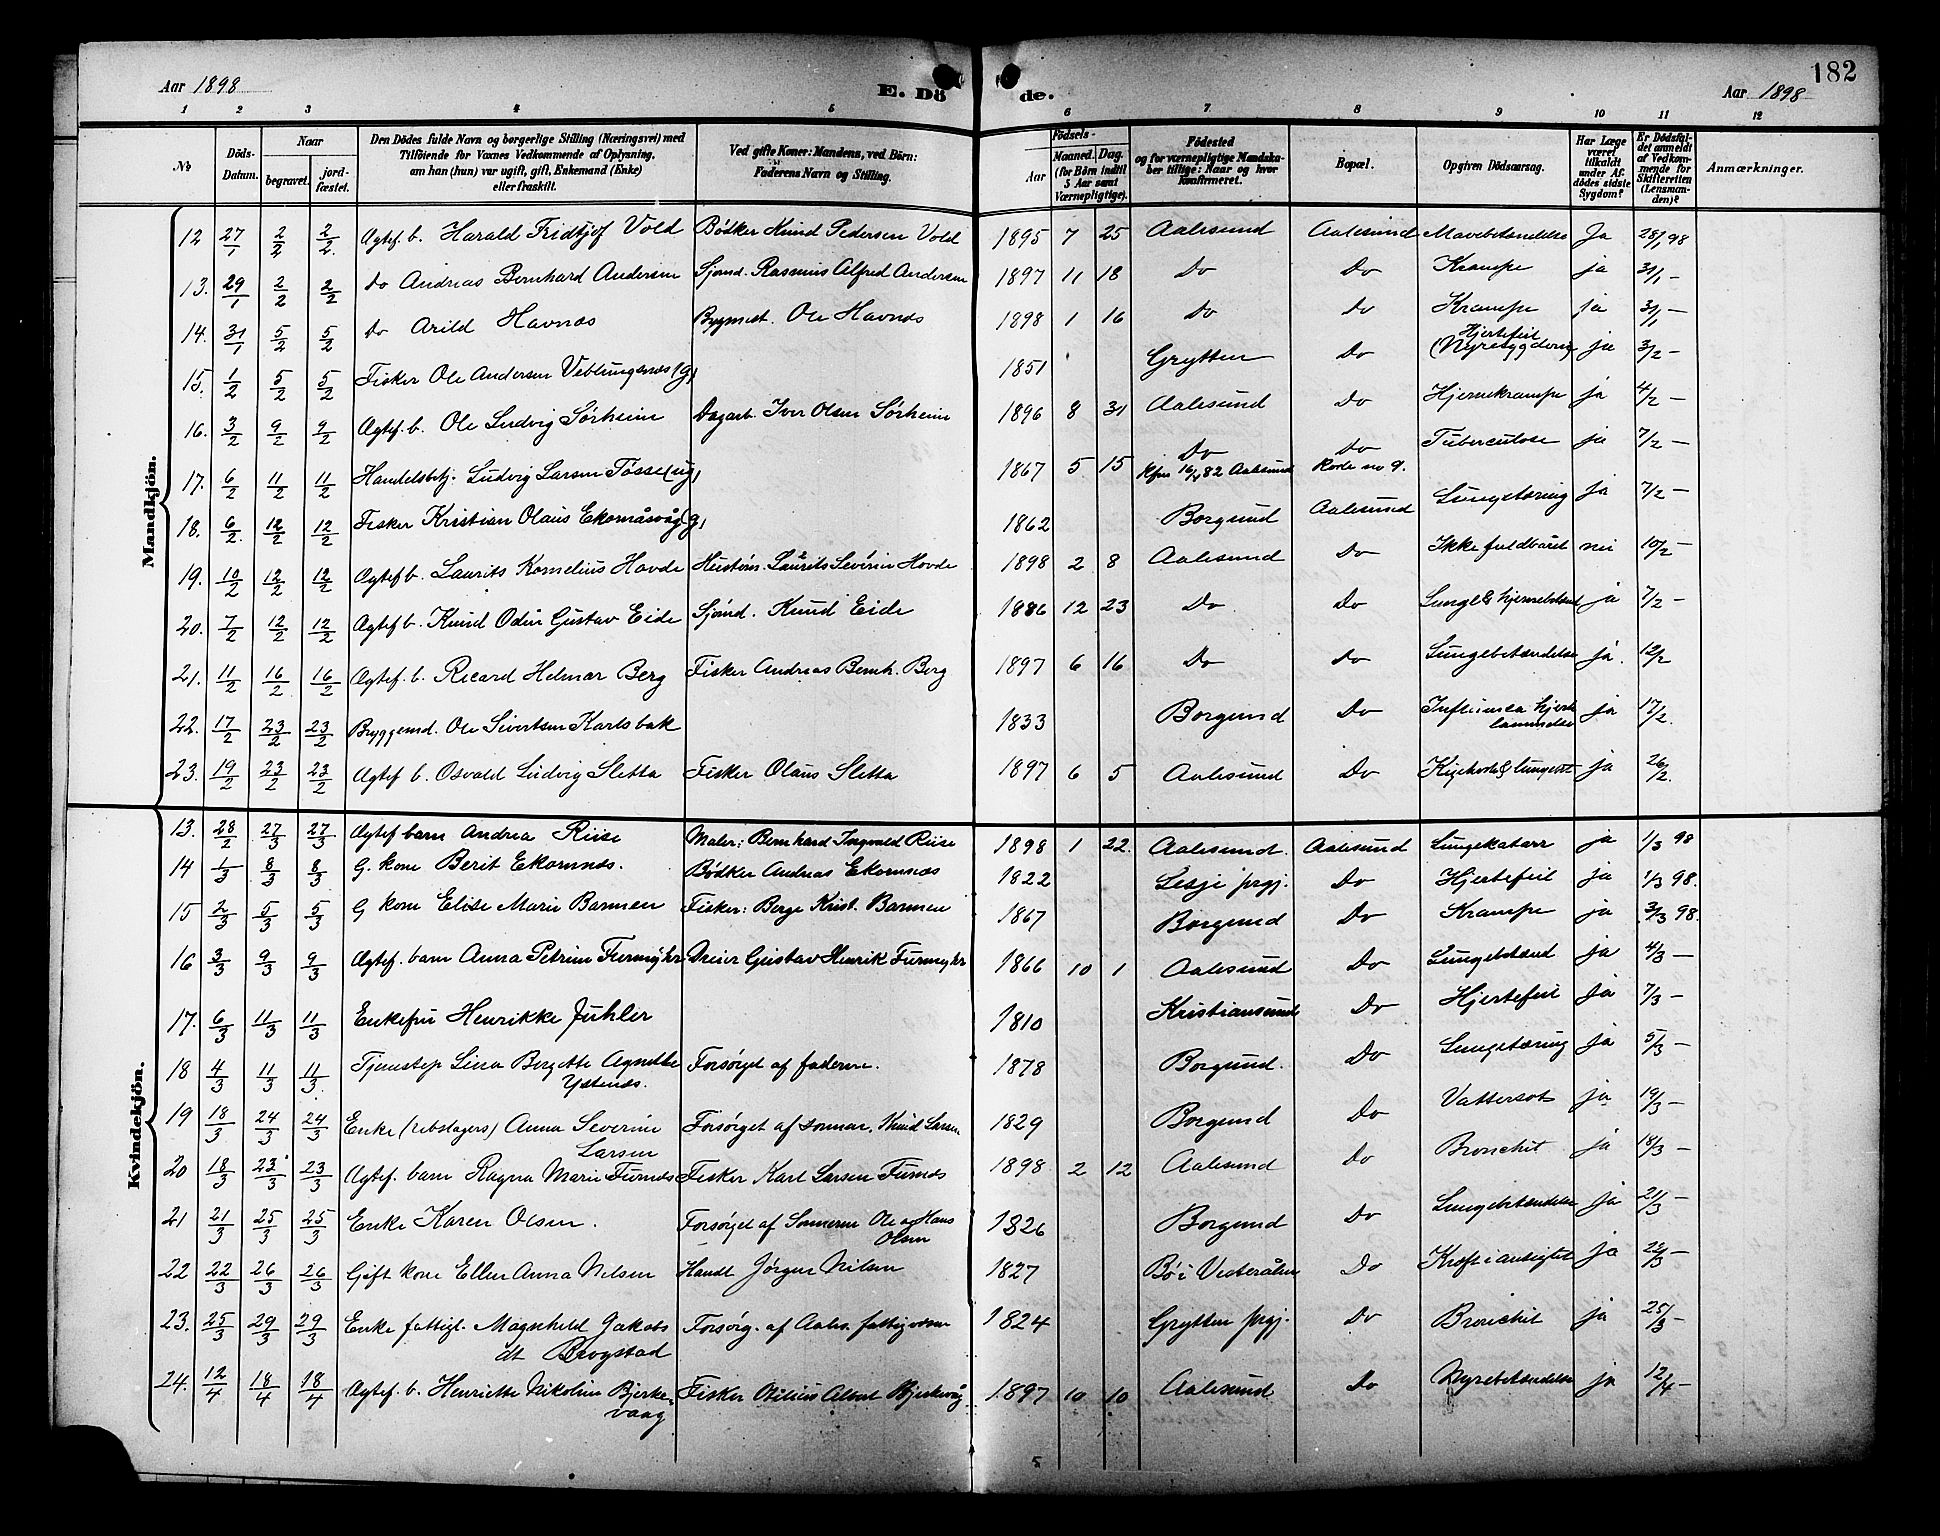 182
Aar 1898
E. Döde.
Aar 1898
1 2 3 4 5 6 7 8 9 10 11 12
No
Döds-Datum.
Naar
begravet.
jord-fæstet.
Den Dödes fulde Navn og borgerlige Stilling (Næringsvei) med
Tilföiende for Voxnes Vedkommende af Oplysning,
om han (hun) var ugift, gift, Enkemand (Enke)
eller fraskilt.
Ved gifte Koner: Mandens, ved Börn:
Faderens Navn og Stilling.
Födsels-
Aar
Maaned. Dag.
(for Börn indtil
5 Aar samt
Værnepligtige).
Födested
og for værnepligtige Mandska-
ber tillige: Naar og hvor
konfirmeret.
Bopæl.
Opgiven Dödsaarsag.
Har Læge
været
tilkaldt
under Af-
dödes sidste
Sygdom?
Er Dödsfal-
det anmeldt
af Vedkom-
mende for
Skifteretten
(Lensman-
den)?
Anmærkninger.
Mandkjön.
12 27/1 2/2 2/2. Ægtef. b. Harald Fridtjof Vold Bødker Knud Pedersen Vold 1895 7 25 Aalesund Aalesund Mavebetændelse Ja 28/1 98
13. 29/1 2/2 2/2 Do Andreas Bernhard Andersen Sjømd. Rasmus Alfred Andersen 1897 11 18 Do Do Krampe ja 31/1 -
14. 31/1 5/2 5/2 Do Arild Havnæs Bygmest. Ole Havnæs 1898 1 16 Do Do Krampe ja 31/1 -
15. 1/2 5/2 5/2 Fisker Ole Andersen Veblungsnæs (g) 1851 Grytten Do Hjertefeil (Nyresygdom) ja 3/2 -
16. 3/2 9/2 9/2 Ægtef. b. Ole Ludvig Sørheim Dagarb. Iver Olsen Sørheim 1896 8 31 Aalesund Do Hjernekrampe ja 4/2 -
17. 6/2 11/2 11/2 Handelsbetj. Ludvig Larsen Tøsse (ug) 1867 5 15 Do Kfm 16/4 82 Aalesund Do Rode no 9. Tuberculose ja 7/2 -
18. 6/2. 12/2 12/2 Fisker Kristian Olaus Ekornåsvåg (g) 1862 Borgund Aalesund Lungetæring ja 7/2 -
19. 10/2 12/2 12/2 Ægtef b. Laurits Kornelius Hovde Hustøm. Laurits Severin Hovde 1898 2 8 Aalesund Do Ikke fuldbåret nei 10/2 -
20. 7/2 12/2 12/2 Ægtef b. Knud Odin Gustav Eide Sjømd. Knud Eide 1886 12 23 Do. Do Lunge & hjernebetænd ja 7/2 -
21. 11/2 16/2 16/2 Ægtef. b. Ricard Helmar Berg Fisker Andreas Bernh. Berg 1897 6 16 Do Do Lungebetændelse ja. 12/2
22. 17/2 23/2 23/2 Bryggemd. Ole Sivertsen Karlsbak 1833 Borgund Do Influenza hjerte lammelse ja 17/2.
23. 19/2 23/2 23/2 Ægtef b. Osvald Ludvig Sletta Fisker Olaus Sletta 1897 6 5 Aalesund Do ja 26/2.
Kvindekjön.
13. 28/2 27/3 27/3 Ægtef barn Andrea Riise Maler: Bernhard Ingvald Riise 1898 1 22. Aalesund. Aalesund Lungekatarr ja 1/3 98
14 1/3 8/3 8/3 G. kone Berit Ekornæs. Bødker Andreas Ekornnæs 1822 Lesje prgj. Do Hjertefeil ja 1/3 98.
15 2/3 5/3 5/3 G kone Elise Marie Barmen Fisker: Berge Krist. Barmen 1867 Borgund Do Krampe ja 3/3 98.
16 3/3 9/3 9/3 Ægtef. barn Anna Petrine Furmyhr Dreier Gustav Henrik Furmyhr 1866 10 1 Aalesund Do Lungebetænd ja 4/3 -
17. 6/3 11/3 11/3 Enkefru Henrikke Juhler 1810 Kristiansund Do Hjertefeil ja 7/3 -
18 4/3 11/3 11/3. Tjenestep Lina Bergitte Agnethe Ystenæs. Forsørget af faderen. 1878 Borgund. Do Lungetæring ja 5/3 -
19 18/3 24/3 24/3 Enke (rebslagers) Anna Severine Larsen Forsørget af sønnen. Knud Larsen 1829 Borgund Do Vattersot ja 19/3 -
20 18/3 23/3 23/3 Ægtef. barn Ragna Marie Furnes Fisker Karl Larsen Furnæs 1898 2 12 Aalesund Do Bronchit ja 18/3 -
21 21/3 25/3 25/3 Enke Karen Olsen. Forsørget af Sønnerne Ole og Hans Olsen 1826 Borgund Do Lungebetændelse ja 21/3 -
22 22/3 26/3 26/3 Gift kone Ellen Anna Nilsen Handl Jørgen Nilsen 1827 Bø i Vesterålen Do Kræft i ansigtet ja 22/3 -
23. 25/3 29/3 29/3 Enke fattigl. Magnhild Jakobs dt Brogstad Forsørg. af Aales. fattigvæsen 1824 Grytten prgj. Do Bronchit ja 25/3 -
24. 12/4 18/4 18/4 Ægtef. b. Henriette Nikoline Bjerke-vaag Fisker Bjerkevåg 1897 10 10 Aalesund Do Nyrebetændelse ja 12/4 -